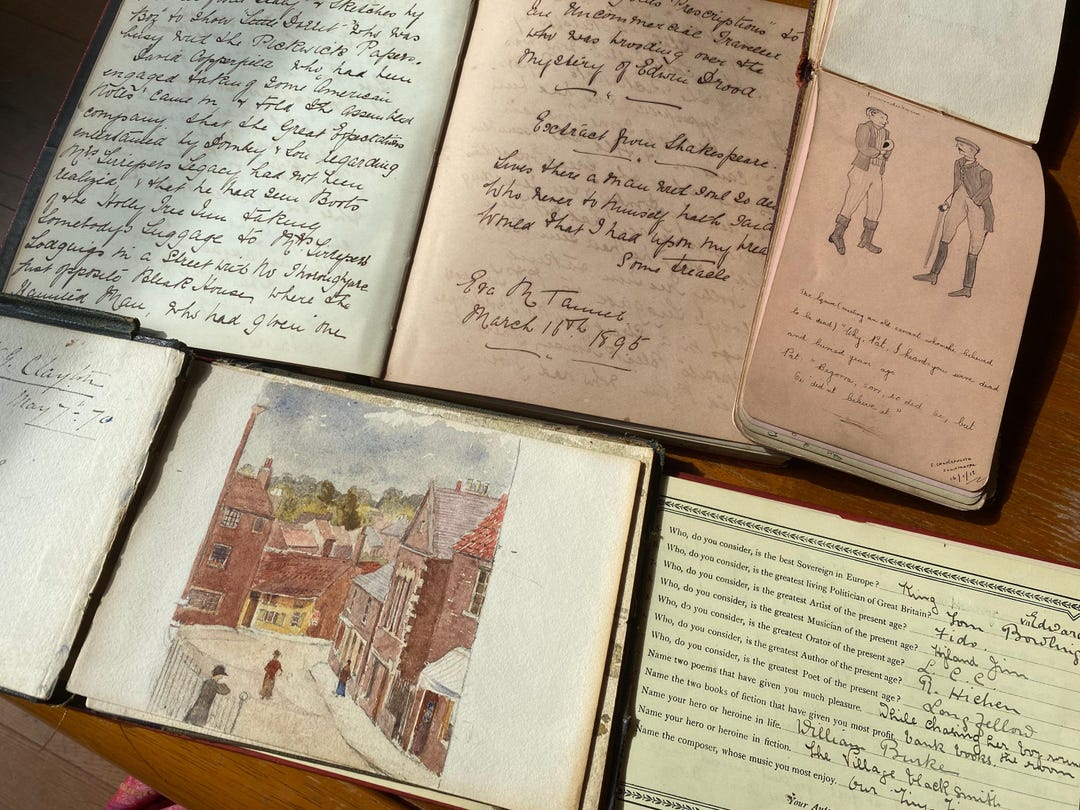 Boz" to show Little Dorrit who was
busy with the Pickwick Papers.
David Copperfield who had been
engaged taking some "American
Notes" came in, & told the assembled
company that the Great Expectations
entertained by Dombey & Son regarding
Mrs Lirripers Legacy had not been
realized, & that he had seen Boots
of the Holly Tree Inn taking
Somebody's Luggage to Mrs Lirripers
Lodgings in a Street with No Thoroughfare
just opposite Bleak House where the
Haunted Man, who had given one
Prescriptions" to
an Uncommercial Traveller
who was brooding over the
Mystery of Edwin Drood.
Extract from Shakespeare.
Lives there a man with soul so dead
Who never to himself hath said
Would that I had upon my bread
Some treacle
Eva M Tanner
March 16th 1895
The Squire (meeting an old servant whom he believed
to be dead) "Why, Pat, I heard you were dead
and buried years ago
Pat. "Begorra, sor, so did Oi, but
Oi didn't believe it"
E. Clayton
May 7th - 70
Who, do you consider, is the best Sovereign in Europe? King Edward VII
Who, do you consider, is the greatest living Politician of Great Britain? Tom Bowling
Who, do you consider, is the greatest Artist of the present age? Fids.
Who, do you consider, is the greatest Musician of the present age? Jim
Who, do you consider, is the greatest Orator of the present age? L. C. C.
Who, do you consider, is the greatest Author of the present age? R. Hichen
Who, do you consider, is the greatest Poet of the present age? Longfellow
Name two poems that have given you much pleasure. While chasing her boy round the room
Name the two books of fiction that have given you most profit. bank books,
Name your hero or heroine in life. William Burke
Name your hero or heroine in fiction. The Village blacksmith
Name the composer, whose music you most enjoy. Our
Your